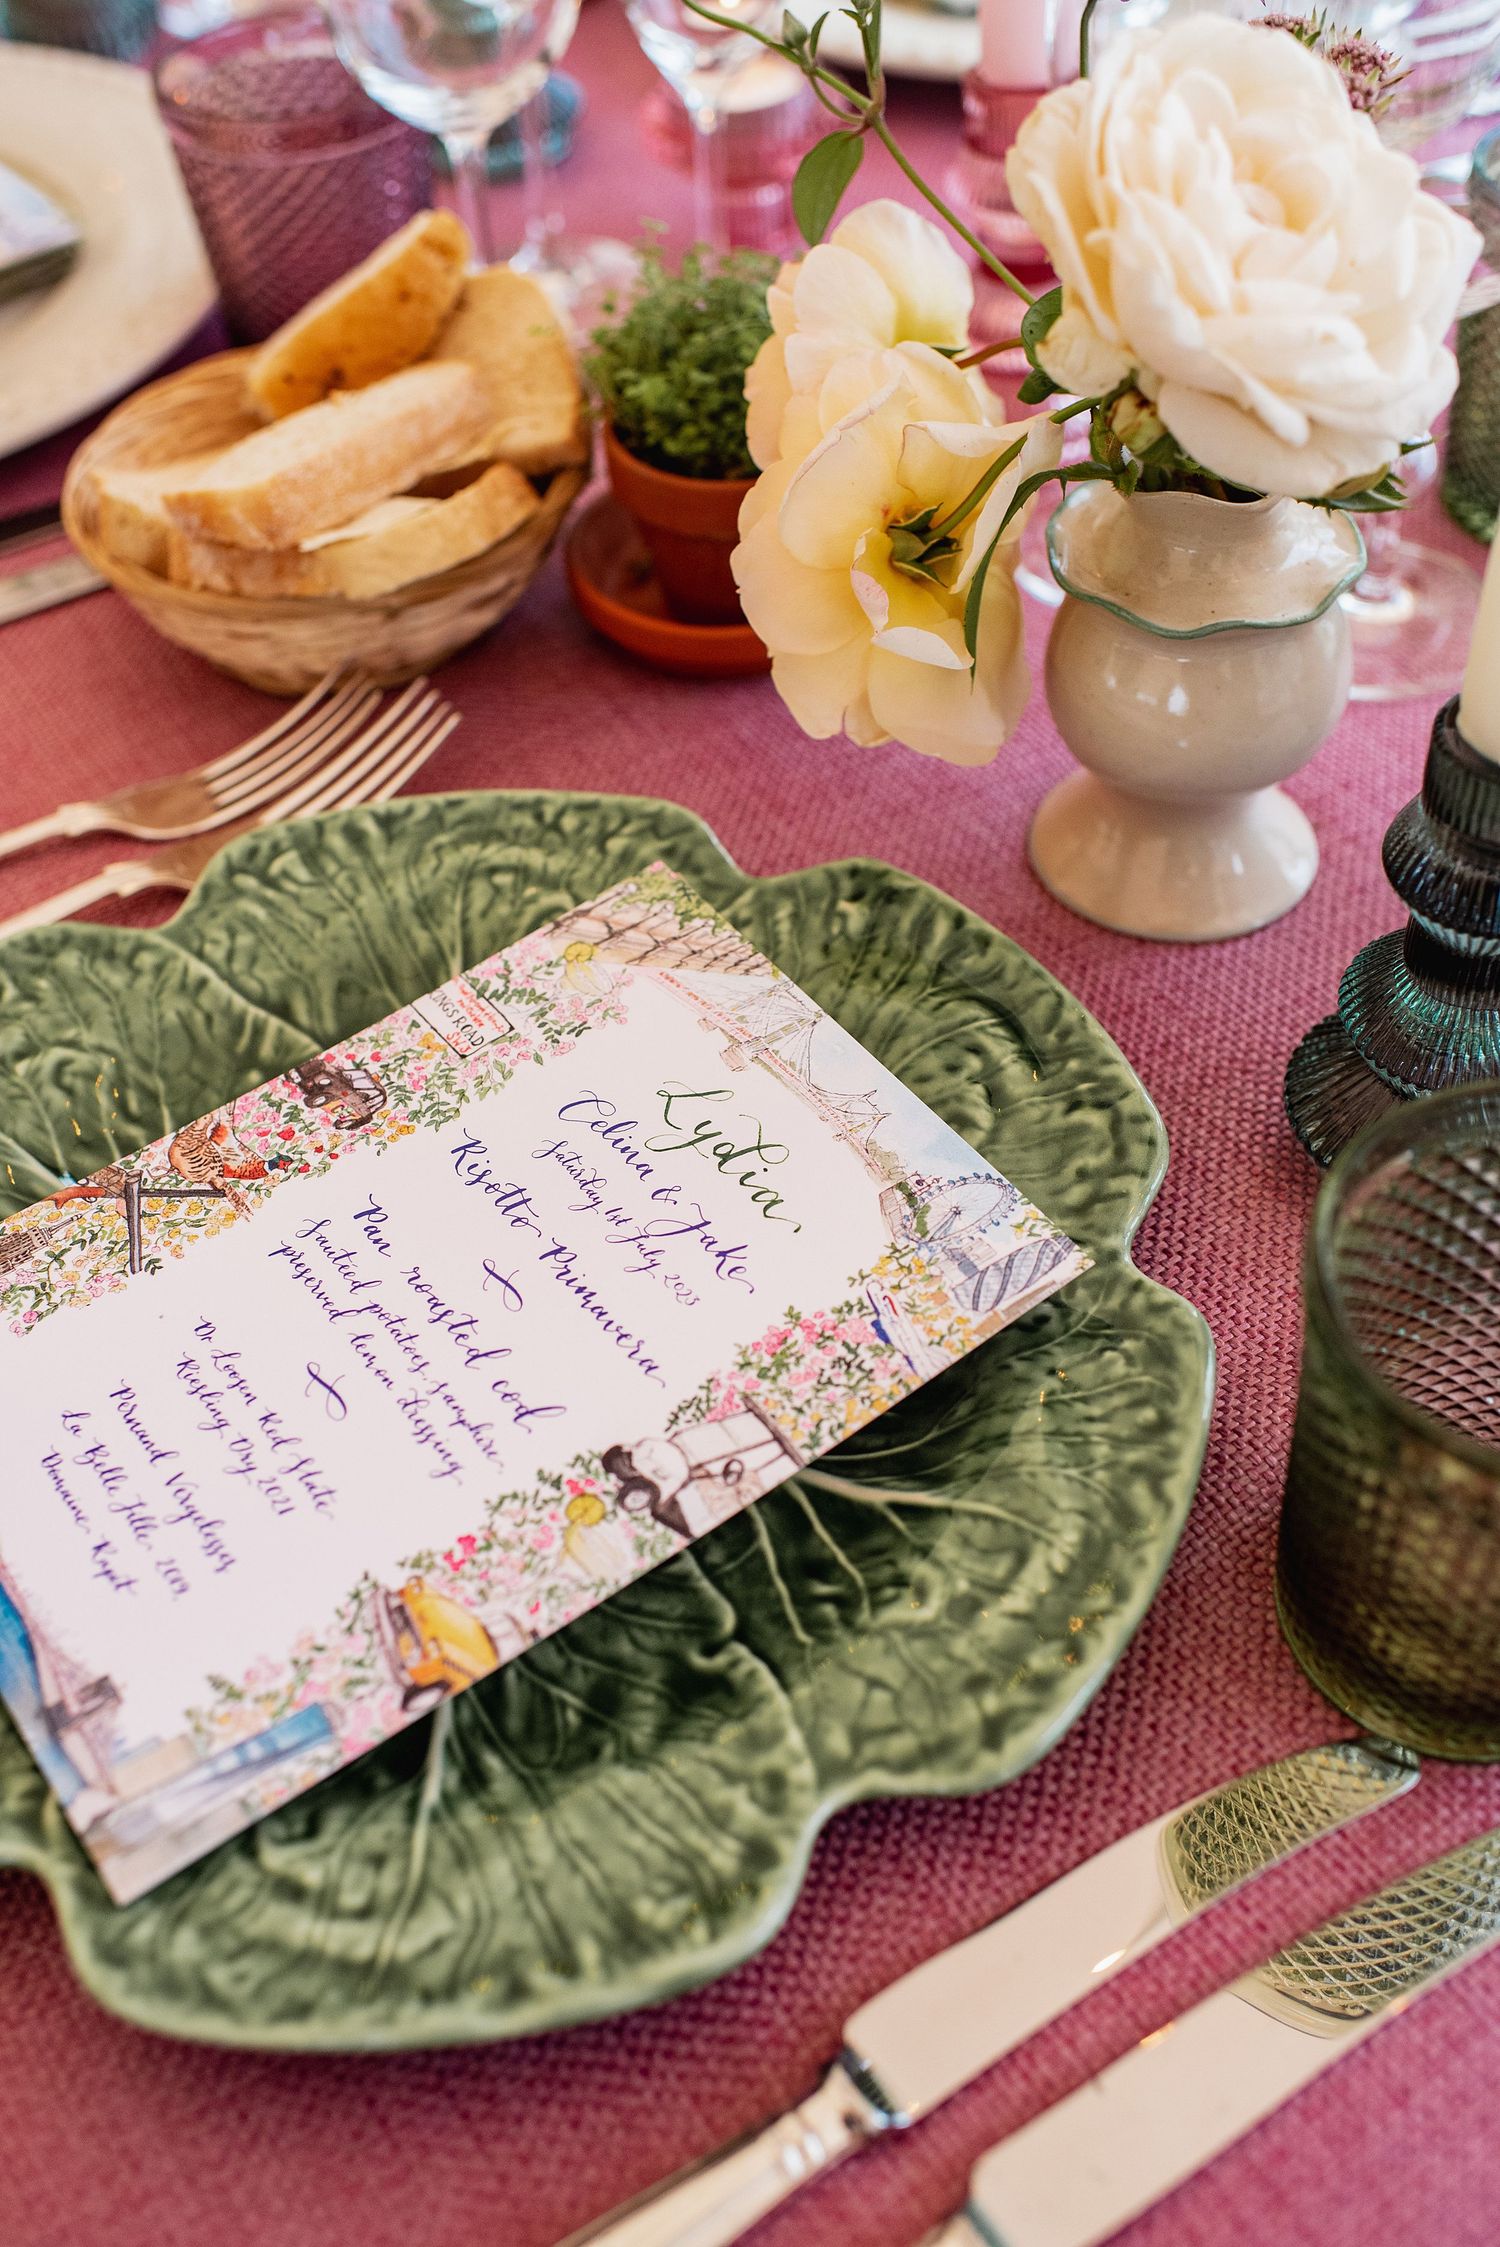 KINGS ROAD
SW3
Lydia
Celina & Jake
Saturday 1st July 2023
Risotto Primavera
Pan roasted cod
Sautéed potatoes, samphire,
preserved lemon dressing
Dr Loosen Red Slate
Riesling Dry 2021
Pernand Vergelesses
La Belle Fille 2019,
Domaine Rapet